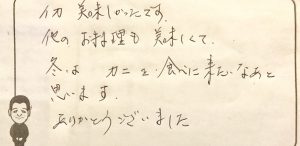 イカ 美味しかったです。
他のお料理も 美味しくて、
冬は カニを 食べに来たいなあと
思います。
ありがとうございました